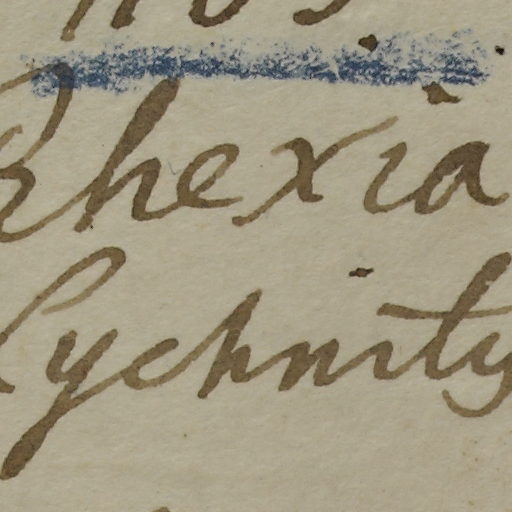 Rhexia
Lychnity